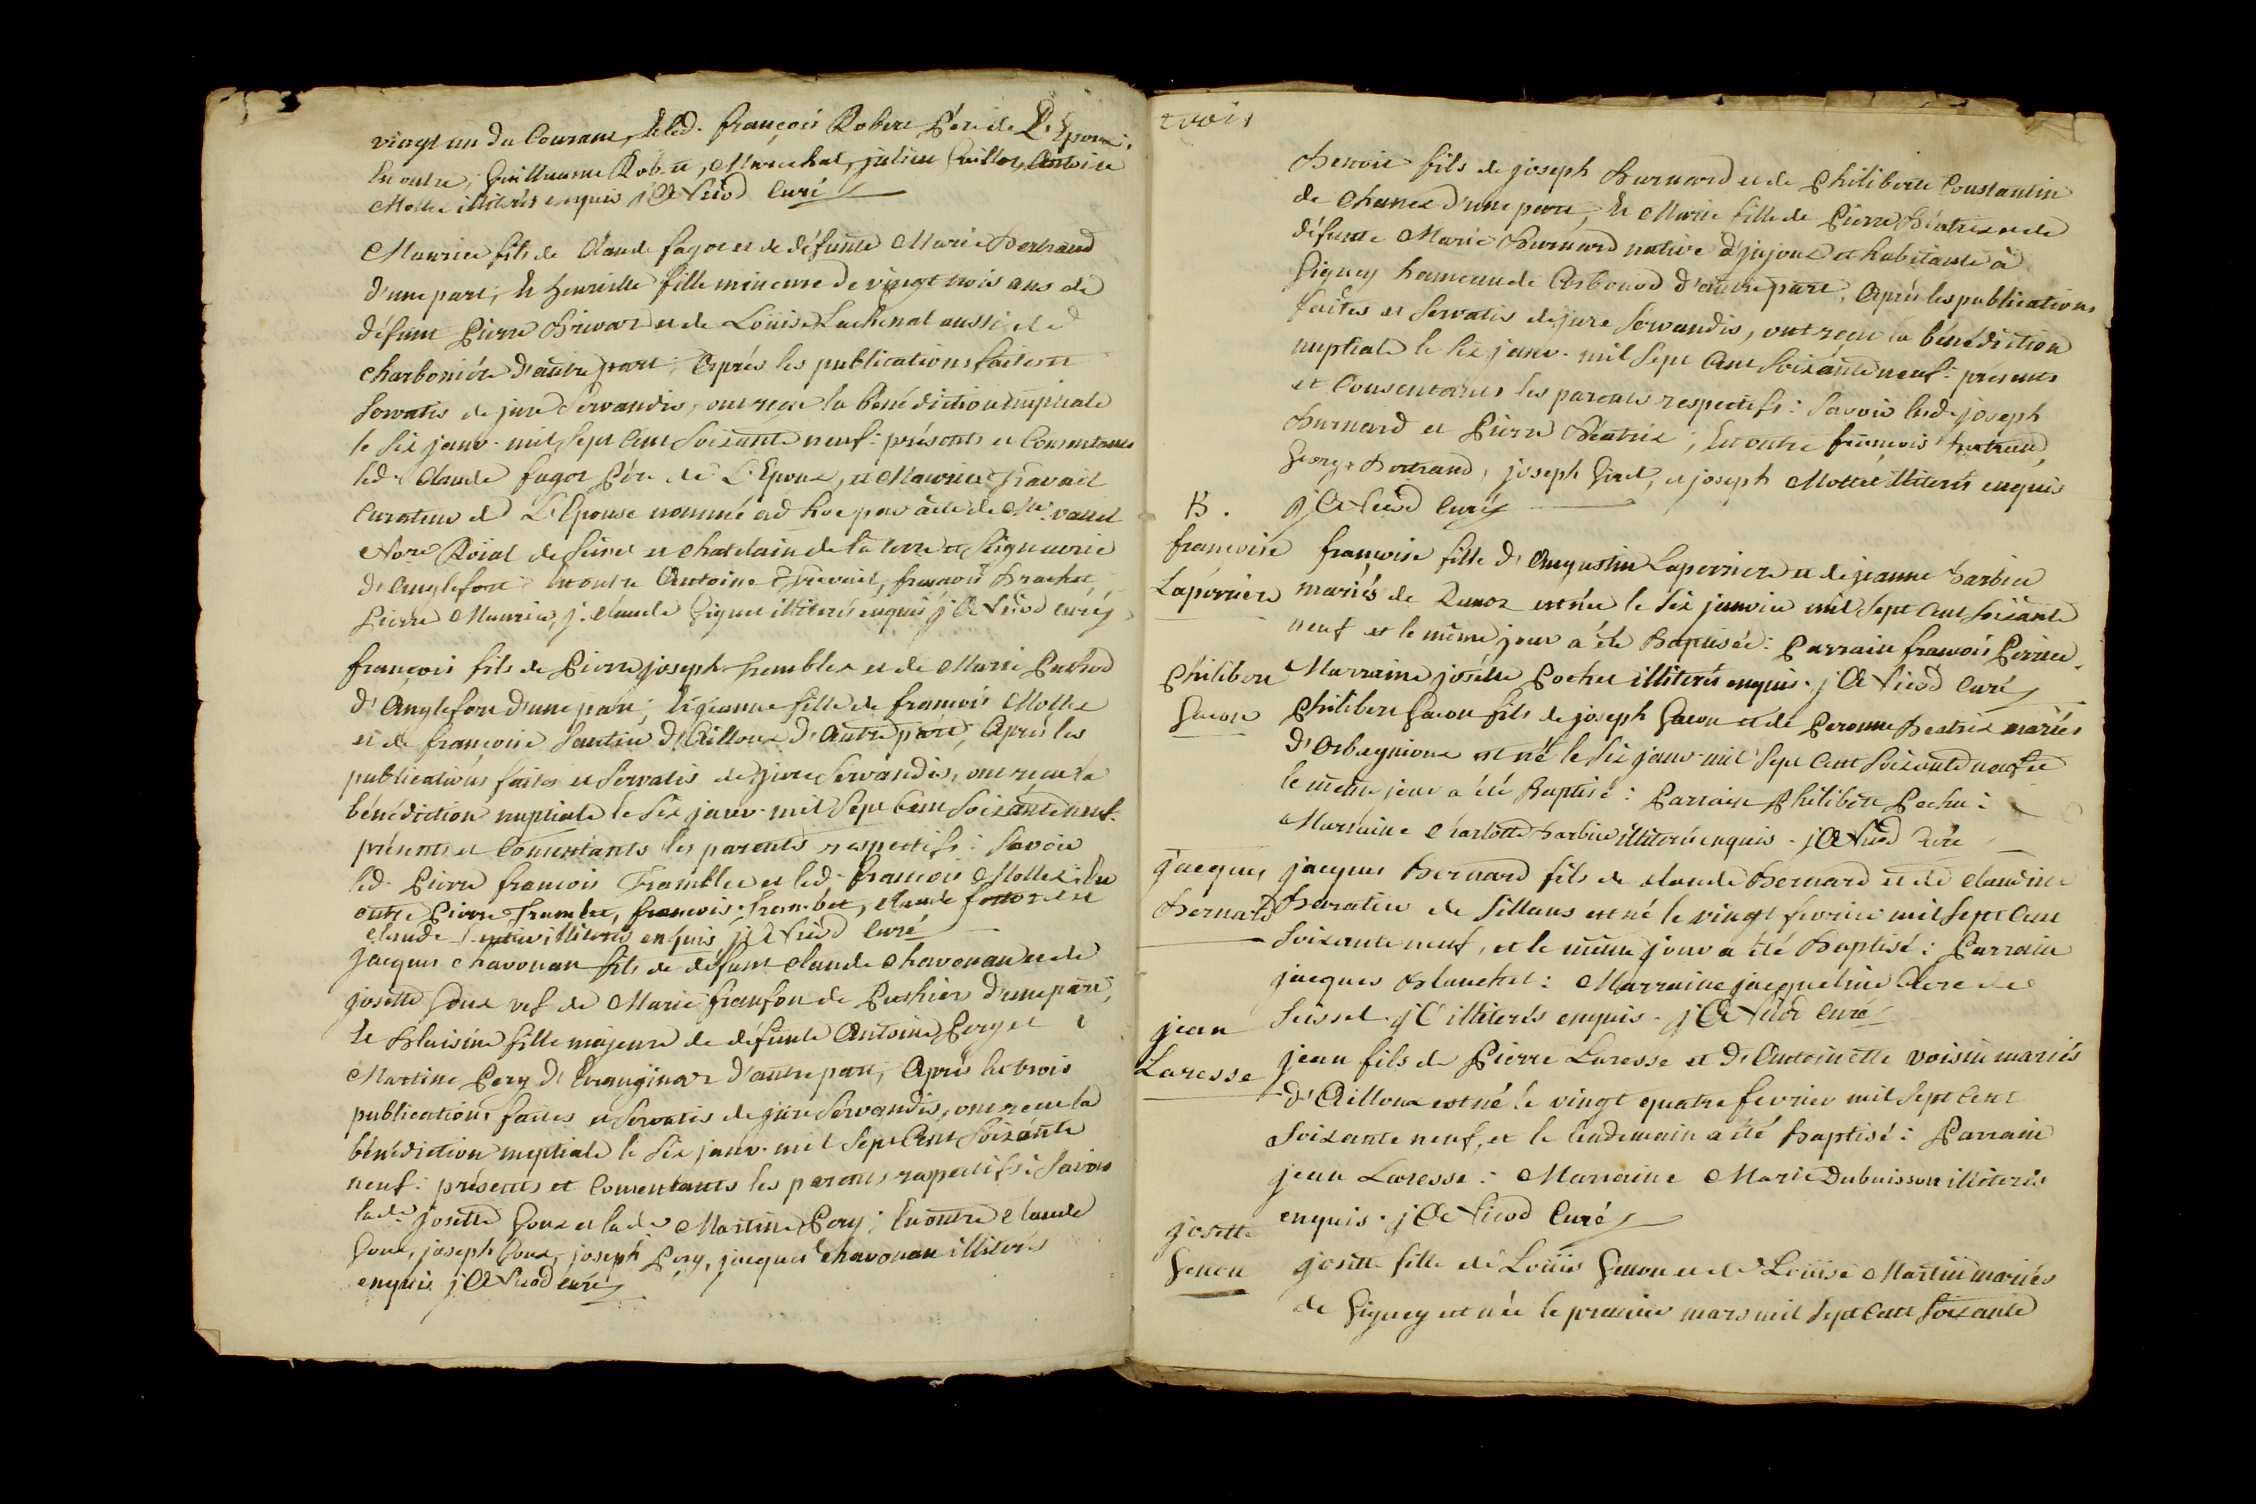 vingt un du Courant, led. françois Robert Pére de L'Epoux;
En outre, Guillaume Robert, Marechal, julien Guillot, Antoine
Mollex illiterés enquis j A Nicod Curé
Maurice fils de Claude fagot et de défunte Marie Bertrand
d'une part, Et henriette fille mineure de vingt trois ans de
défunt Pierre Brivar et de Loüise Lachenal aussi de
charboniére d'autre part; Aprés les publications faites et
Servatis de jure Servandis, ont reçu la bénédiction nuptiale
le Six janv. mil Sept Cent Soixante neuf: présents et Consentants
led. Claude fagot Pére de L'Epoux, et Maurice Travail
Curateur de L'Epouse nommé ad hoc par acte de Me. vallet
Nore. Roïal de Seissel et Chatelain de la terre et Seigneurie
d'Anglefort; En outre Antoine Travail, françois Brachet,
Pierre Maurice, j. claude Piguet illiterés enquis j A Nicod Curé
françois fils de Pierre joseph Tremblex et de Marie Pachod
d'Anglefort d'une part; Et jeanne fille de françois Mollex
et de françoise Sautier d'Ailloux d'Autre part, Aprés les
publications faites et Servatis de jure Servandis, ont reçu la
bénédiction nuptiale le Six janv. mil Sept Cent Soixante neuf.
présents et Consentants les parents respectifs: Savoir
led. Pierre françois Tramblex et led. françois Mollex; En
outre Pierre Tramblet, francois Tramblet, claude
claude illiterés enquis j A Nicod Curé
jacques chavonan fils de défunt claude chavonan et de
josette Goux vef de Marie françon de Puthier d'une part,
Et Blaisine fille majeure de défunts Antoine Perg et
Martine Perg d'Etranginaz d'autre part, Aprés les trois
publications faites et Servatis de jure Servandis, ont reçu la
bénédiction nuptiale le Six janv. mil Sept Cent Soixante
neuf: présents et Consentants les parents respectifs: Savoir
lade. josette Goux et lade. Martine Perg; En outre claude
Goux, joseph Goux, joseph Perg, jacques chavonan illiterés
enquis j A Nicod curé
trois
Benoit fils de joseph Burnard et de Philiberte Constantin
de Chanex d'une part, Et Marie fille de Pierre Béatrix et de
défunte Marie Burnard native d'jnjoux et habitante à
Gigney hameau de Corbonod d'autre part, Aprés les publications
faites et Servatis de jure Servandis, ont reçu la bénédiction
nuptiale le Six janv. mil Sept Cent Soixante neuf: présents
et Consentants les parents respectifs: Savoir led. joseph
Burnard et Pierre Béatrix; En outre françois Bertrand,
George Bertrand, joseph Girel, et joseph Mottet illiterés enquis
j A Nicod Curé
B.
françoise
Laperriere
françoise fille d'Augustin Laperriere et de jeanne Barbier
mariés de Runoz est née le Six janvier mil Sept Cent Soixante
neuf et le même jour a été Baptisée: Parrain françois Perrier
Marraine josette Pochet illiterés enquis. j A Nicod Curé
Philibert
Gacon
Philibert Gacon fils de joseph Gacon et de Peronne Beatrix mariés
d'Orbagnoux est né le Six janv. mil Sept Cent Soixante neuf et
le même jour a été Baptisé: Parrain Philibert Pochet:
Marraine Charlotte Barbier illiterés enquis. j A Nicod Curé
jacques
Bernard
jacques Bernard fils de claude Bernard et de claudine
Baratier de Sillans est né le vingt fevrier mil Sept Cent
Soixante neuf, et le même jour a été Baptisé: Parrain
jacques Blanchet: Marraine jacqueline Clerc de
Seissel illiterés enquis. j A Nicod Curé
jean
Laresse
jean fils de Pierre Laresse et d'Antoinette voisin mariés
d'Ailloux est né le vingt quatre fevrier mil Sept Cent
Soixante neuf, et le lendemain a été Baptisé: Parrain
jean Laresse: Marraine Marie Dubuisson illiterés
enquis. j A Nicod Curé
josette
Genon
josette fille de Loüis Genon et de Loüise Martin mariés
de Gigney est née le premier mars mil Sept Cent Soixante